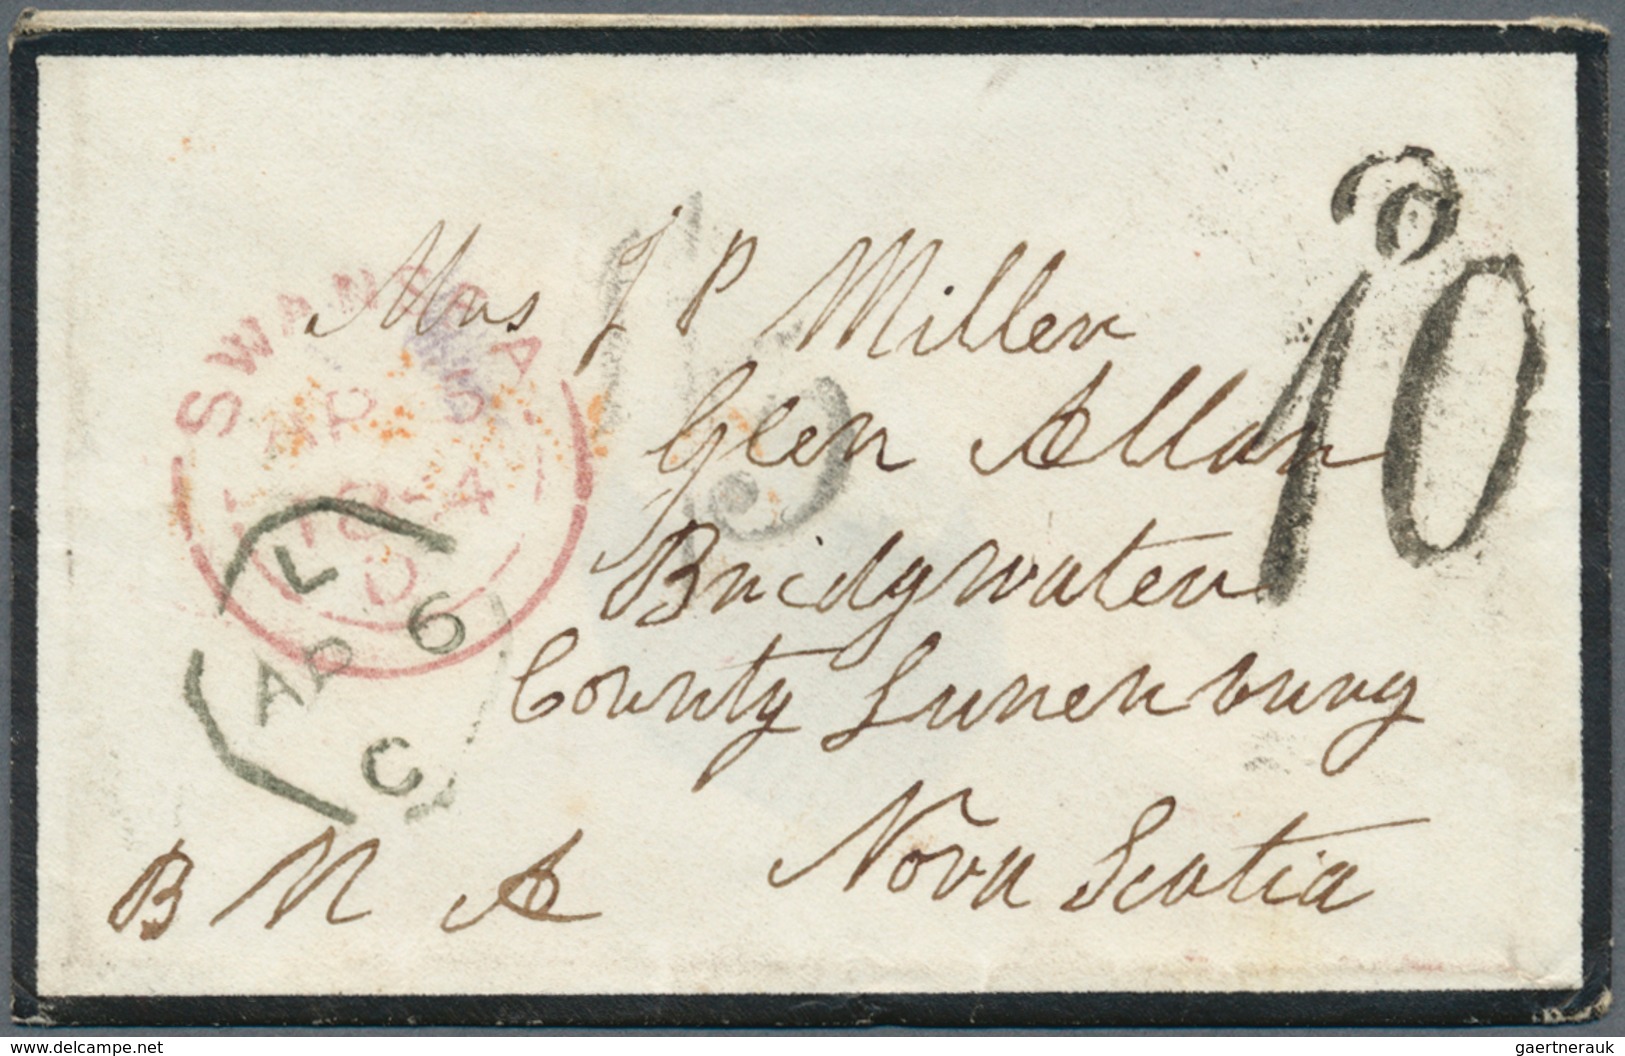 Mrs J P Miller
Glen Allan
Bridgwater
County Lunenburg
Nova Scotia
B N A
SWANSEA
AP 5
1854
L
AP 6
C
10
delcampe.net
gaertnerauk